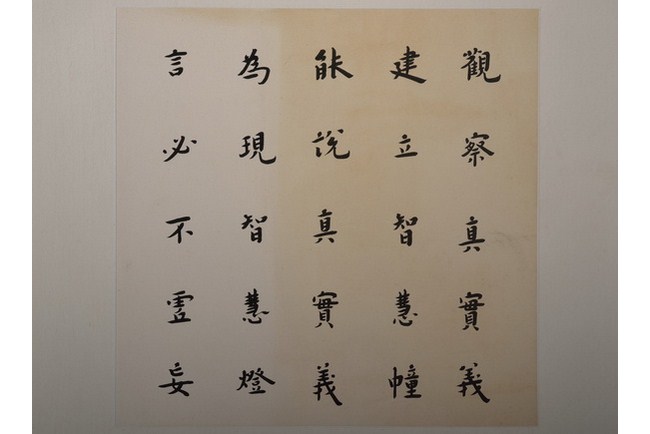 觀察真實義
建立智慧幢
能說真實義
為現智慧燈
言必不虛妄